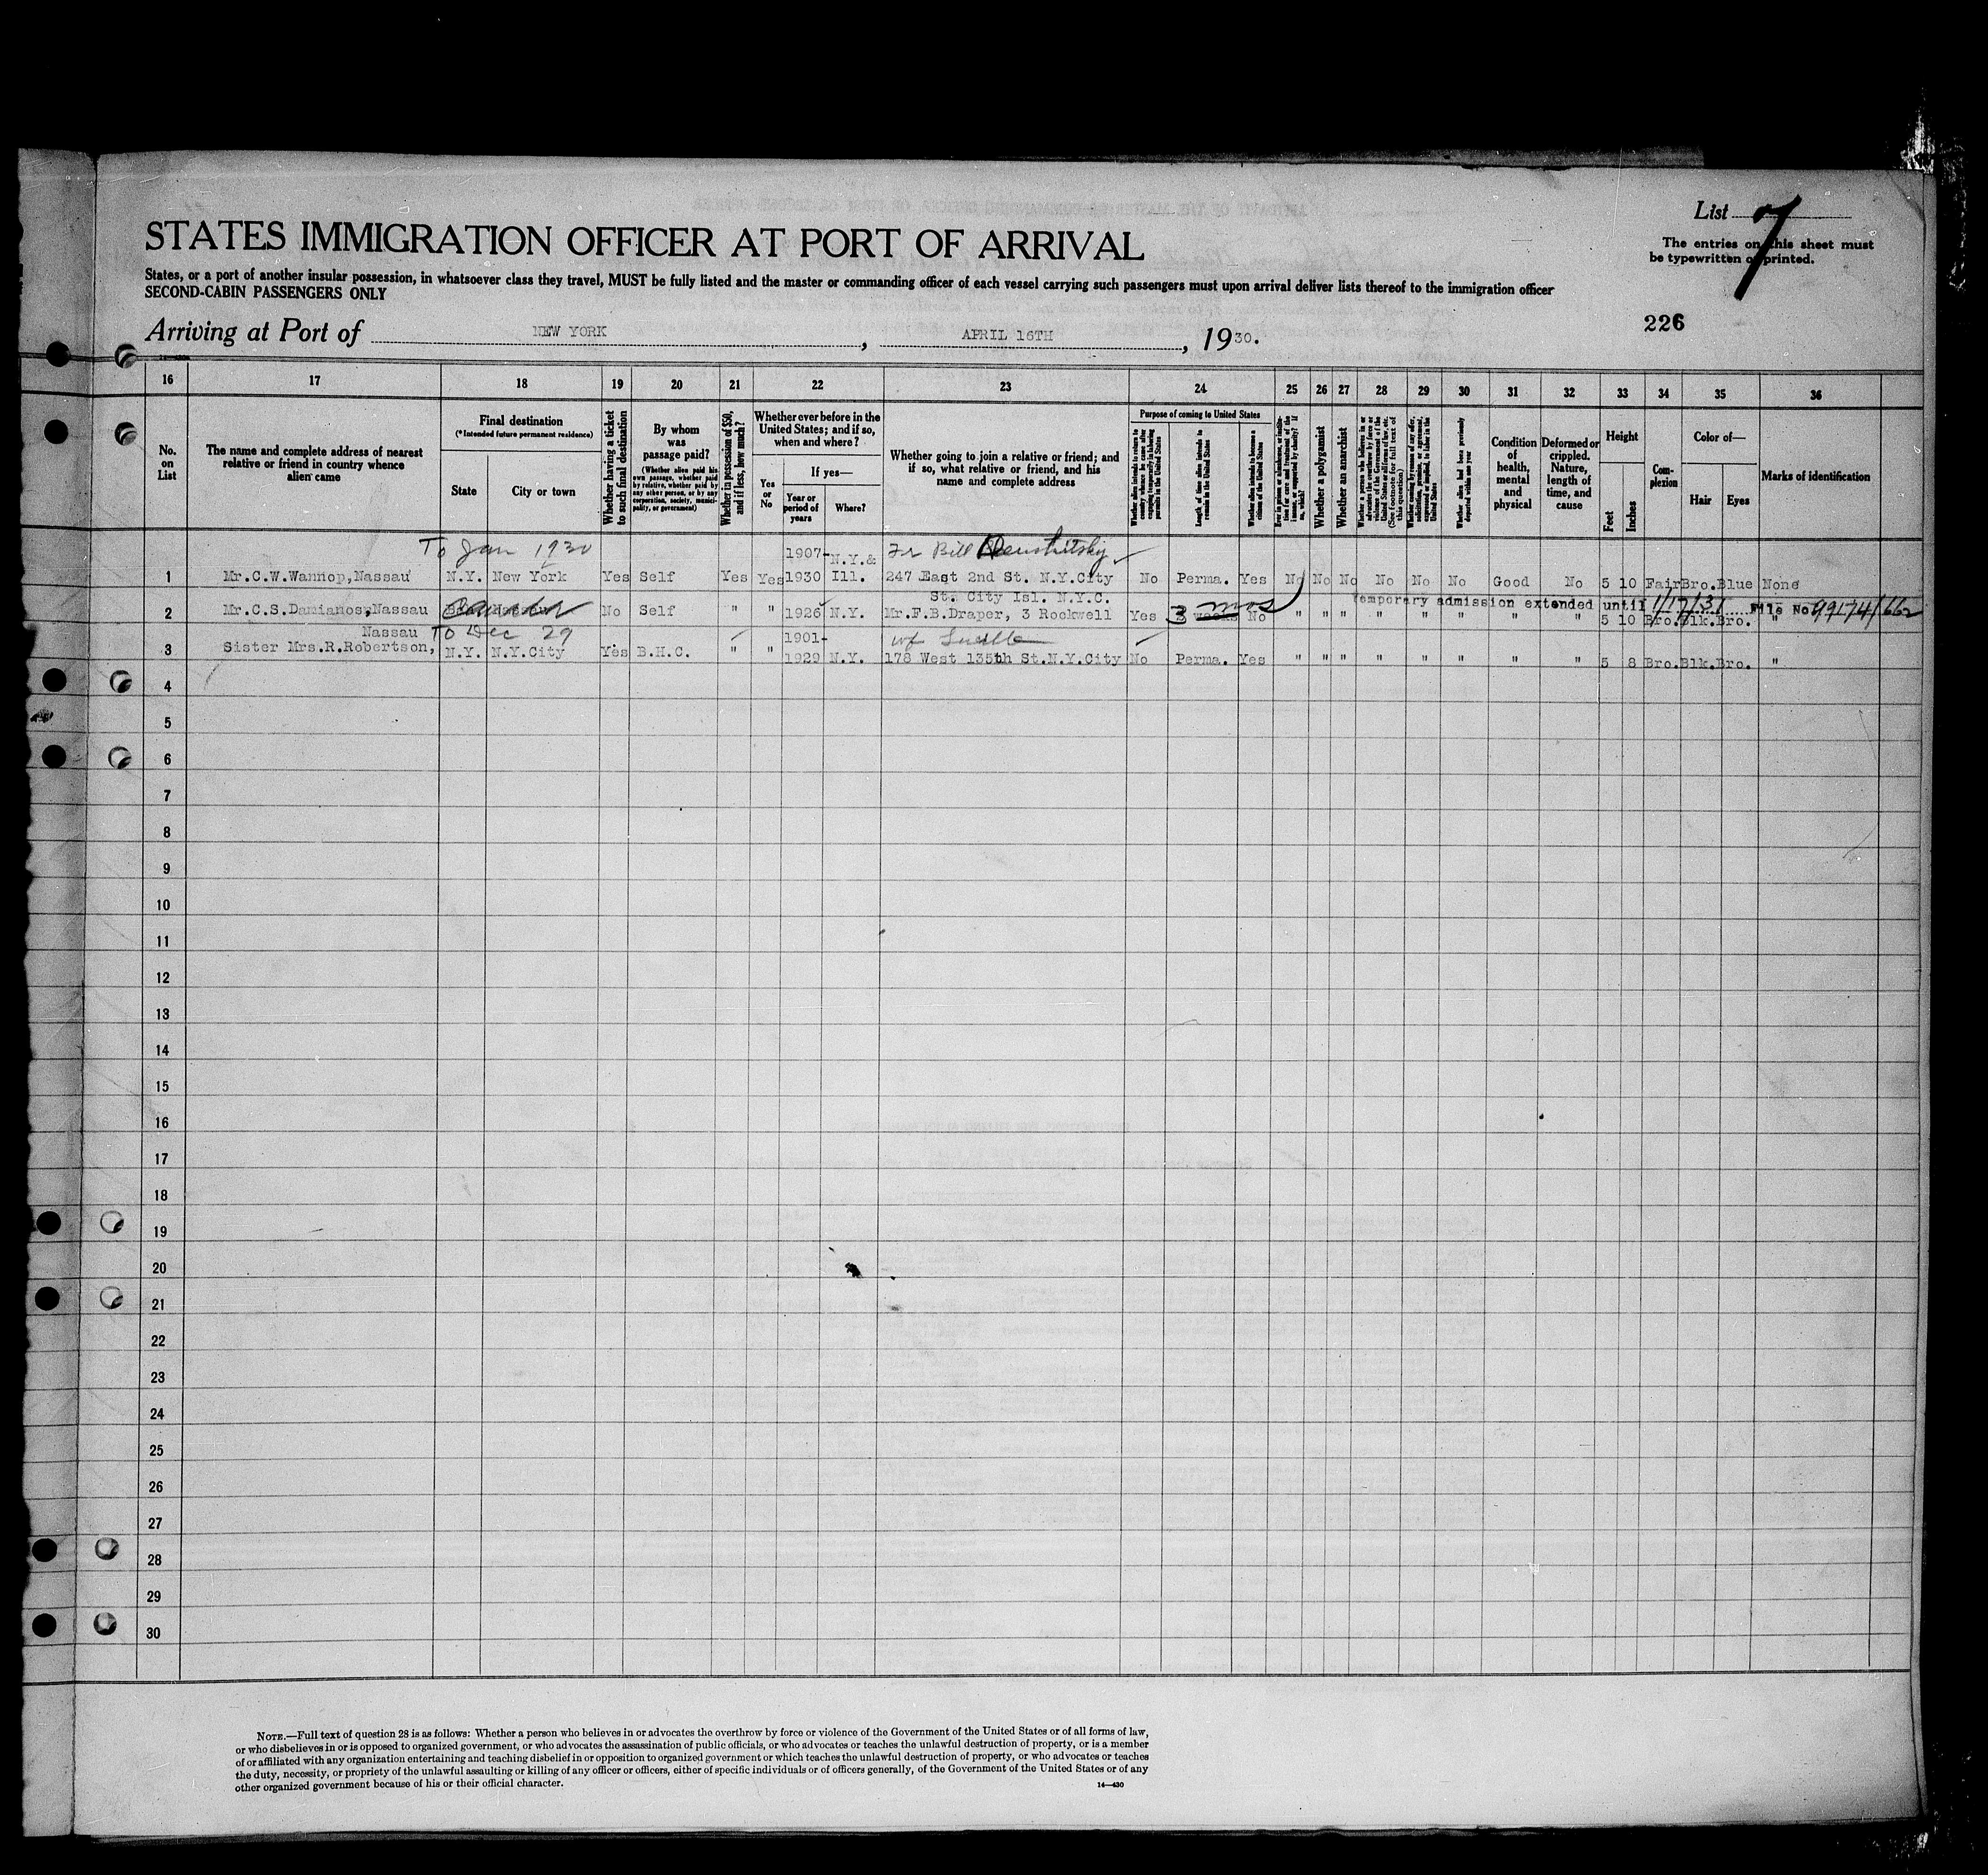 List 7
STATES IMMIGRATION OFFICER AT PORT OF ARRIVAL
The entries on this sheet must
be typewritten or printed.
States, or a port of another insular possession, in whatsoever class they travel, MUST be fully listed and the master or commanding officer of each vessel carrying such passengers must upon arrival deliver lists thereof to the immigration officer
SECOND-CABIN PASSENGERS ONLY
226
Arriving at Port of NEW YORK, APRIL 16TH, 1930.
16 17 18 19 20 21 22 23 24 25 26 27 28 29 30 31 32 33 34 35 36
No. on List
The name and complete address of nearest relative or friend in country whence alien came
Final destination
(*Intended future permanent residence)
State
City or town
Whether having a ticket to such final destination
By whom was passage paid?
(Whether alien paid his own passage, whether paid by relative, whether paid by any other person, or by any corporation, society, municipality, or government)
Whether in possession of $50, and if less, how much?
Whether ever before in the United States; and if so, when and where?
Yes or No
If yes—
Year or period of years
Where?
Whether going to join a relative or friend; and if so, what relative or friend, and his name and complete address
Purpose of coming to United States
Whether alien intends to return to country whence he came after engaging temporarily in laboring pursuits in the United States
Length of time alien intends to remain in the United States
Whether alien intends to become a citizen of the United States
Ever in prison or almshouse, or institution for care and treatment of the insane, or supported by charity? If so, which?
Whether a polygamist
Whether an anarchist
Whether a person who believes in or advocates the overthrow by force or violence of the Government of the United States or all forms of law, etc. (See footnote for full text of this question)
Whether coming by reason of any offer, solicitation, promise, or agreement, expressed or implied, to labor in the United States
Whether alien had been previously deported within one year
Condition of health, mental and physical
Deformed or crippled. Nature, length of time, and cause
Height
Feet
Inches
Complexion
Color of—
Hair
Eyes
Marks of identification
To Jan 1930
1907- N.Y.& Fr Bill
1 Mr.C.W.Wannop,Nassau N.Y. New York Yes Self Yes Yes 1930 Ill. 247 East 2nd St. N.Y.City No Perma. Yes No No No No No No Good No 5 10 Fair Bro. Blue None
St. City Isl. N.Y.C. mos temporary admission extended until 1/17/31 File No 99174/662
2 Mr.C.S.Damianos,Nassau No Self " " 1926 N.Y. Mr.F.B.Draper, 3 Rockwell Yes 3 weeks No " " " " " " " " 5 10 Bro. Blk. Bro. "
Nassau To Dec 29 1901- wf Lucille
3 Sister Mrs.R.Robertson, N.Y. N.Y.City Yes B.H.C. " " 1929 N.Y. 178 West 135th St.N.Y.City No Perma. Yes " " " " " " " " 5 8 Bro. Blk. Bro. "
4
5
6
7
8
9
10
11
12
13
14
15
16
17
18
19
20
21
22
23
24
25
26
27
28
29
30
NOTE.—Full text of question 28 is as follows: Whether a person who believes in or advocates the overthrow by force or violence of the Government of the United States or of all forms of law,
or who disbelieves in or is opposed to organized government, or who advocates the assassination of public officials, or who advocates or teaches the unlawful destruction of property, or is a member
of or affiliated with any organization entertaining and teaching disbelief in or opposition to organized government or which teaches the unlawful destruction of property, or who advocates or teaches
the duty, necessity, or propriety of the unlawful assaulting or killing of any officer or officers, either of specific individuals or of officers generally, of the Government of the United States or of any
other organized government because of his or their official character.
14—430